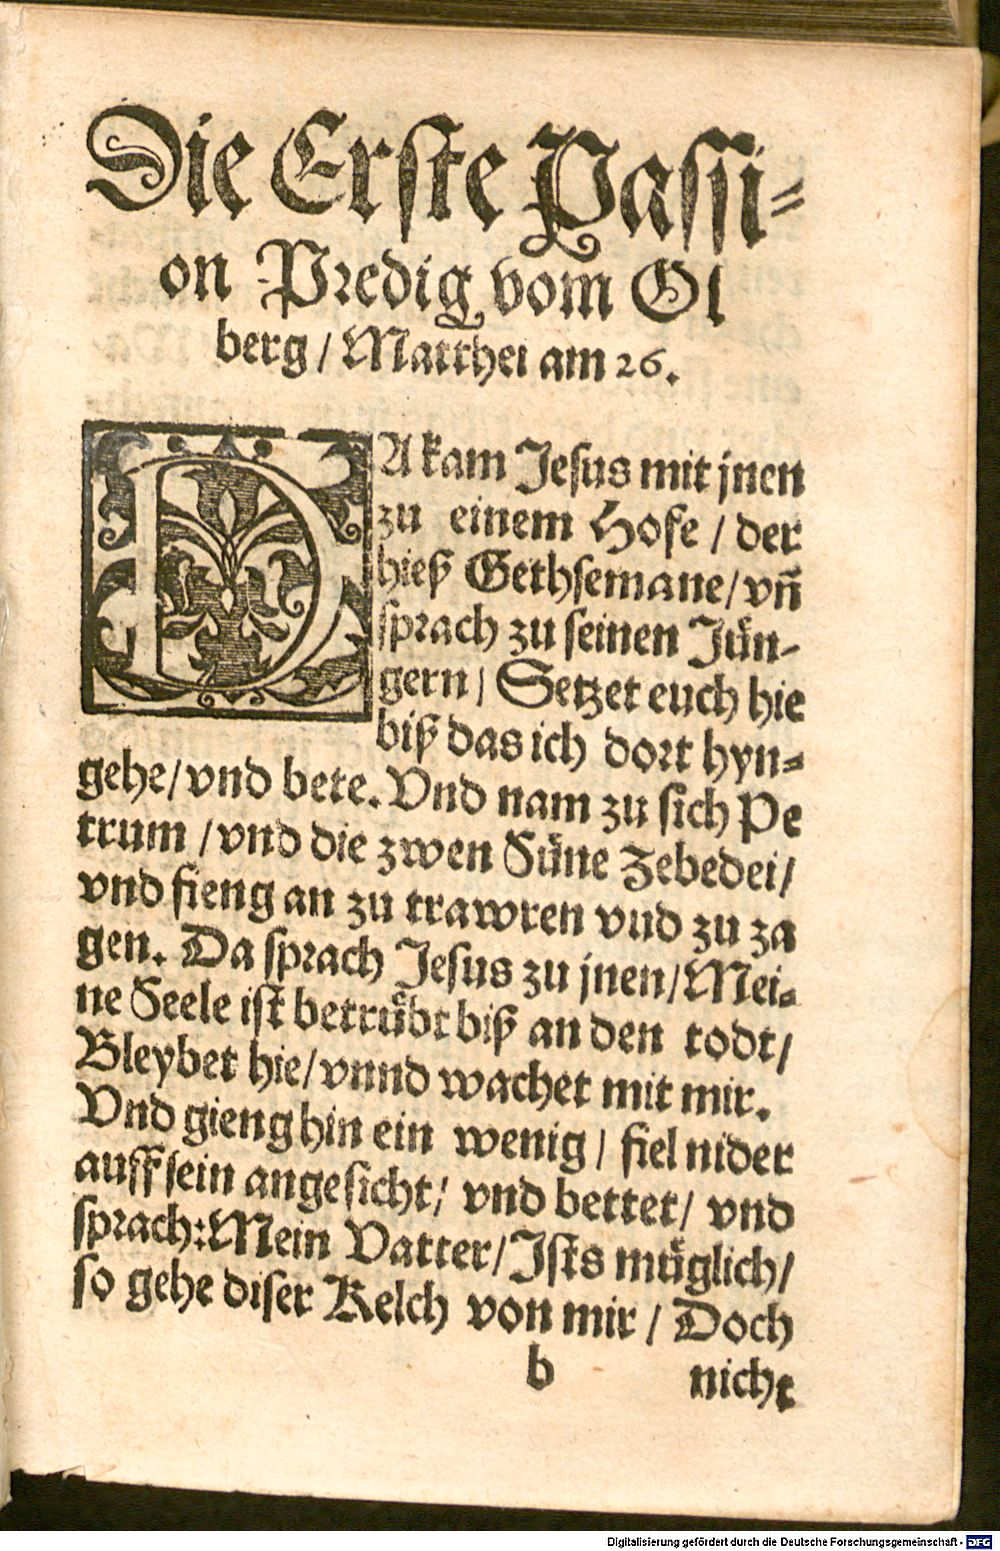 Die Erste Passi-
on Predig vom Ol
berg/ Matthei am 26.
DA kam Jesus mit jnen
zu einem Hofe/ der
hieß Gethsemane/ vn̄
sprach zu seinen Juͤn-
gern/ Setzet euch hie
biß das ich dort hyn-
gehe/ vnd bete. Vnd nam zu sich Pe
trum/ vnd die zwen Suͤne Zebedei/
vnd fieng an zu trawren vnd zu za
gen. Da sprach Jesus zu jnen/ Mei-
ne Seele ist betruͤbt biß an den todt/
Bleybet hie/ vnnd wachet mit mir.
Vnd gieng hin ein wenig/ fiel nider
auff sein angesicht/ vnd bettet/ vnd
sprach: Mein Vatter/ Ists muͤglich/
so gehe diser Kelch von mir/ Doch
b nicht
Digitalisierung gefördert durch die Deutsche Forschungsgemeinschaft - DFG